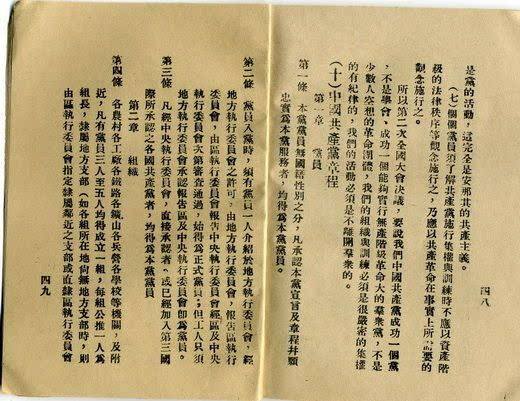 四八
是黨的活動，這完全是安那其的共產主義。
（七）個個黨員須了解共產黨施行集權與訓練時不應以資產階
級的法律秩序等觀念施行之，乃應以共產革命在事實上所需要的
觀念施行之。
所以第二次全國大會決議，要說我們中國共產黨成功一個黨
不是學會，成功一個能夠實行無產階級革命大的羣衆黨，不是
少數人空想的革命團體，我們的組織與訓練必須是很嚴密的集權
的有紀律的，我們的活動必須是不離開羣衆的。
（十）中國共產黨章程
第一章　黨員
第一條　本黨黨員無國籍性別之分，凡承認本黨宣言及章程幷願
忠實爲本黨服務者，均得爲本黨黨員。
第二條　黨員入黨時，須有黨員一人介紹於地方執行委員會，經
地方執行委員會之許可，由地方執行委員會，報告區執行
委員會，由區執行委員會報告中央執行委員會經區及中央
執行委員會次第審査通過，始得爲正式黨員；但工人只須
地方執行委員會承認報告區及中央執行委員會卽爲黨員。
第三條　凡經中央執行委員會，直接承認者，或已經加入第三國
際所承認之各國共產黨者，均得爲本黨黨員
第二章　組織
第四條　各農村各工廠各鐵路各鑛山各兵營各學校等機關，及附
近，凡有黨員三人至五人均得成立一組，每組公推一人爲
組長，隸屬地方支部（如各組所在地尚無地方支部時，則
由區執行委員會指定隸屬鄰近之支部或直隸區執行委員會
四九